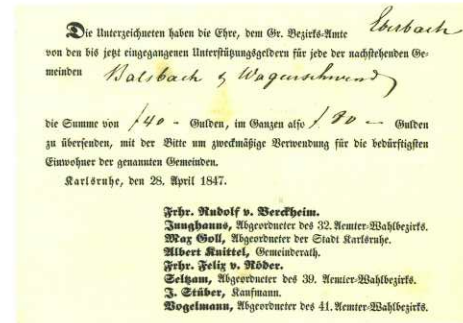 Die Unterzeichneten haben die Ehre, dem Gr. Bezirks-Amte Eberbach
von den bis jetzt eingegangenen Unterstützungsgeldern für jede der nachstehenden Ge-
meinden Balsbach & Wagenschwend
die Summe von f 40 – Gulden, im Ganzen also f 80 – Gulden
zu übersenden, mit der Bitte um zweckmäßige Verwendung für die bedürftigsten
Einwohner der genannten Gemeinden.
Karlsruhe, den 28. April 1847.
Frhr. Rudolf v. Berckheim.
Junghanns, Abgeordneter des 32. Aemter-Wahlbezirks.
Max Goll, Abgeordneter der Stadt Karlsruhe.
Albert Knittel, Gemeinderath.
Frhr. Felix v. Röder.
Seltzam, Abgeordneter des 39. Aemter-Wahlbezirks.
J. Stüber, Kaufmann.
Vogelmann, Abgeordneter des 41. Aemter-Wahlbezirks.